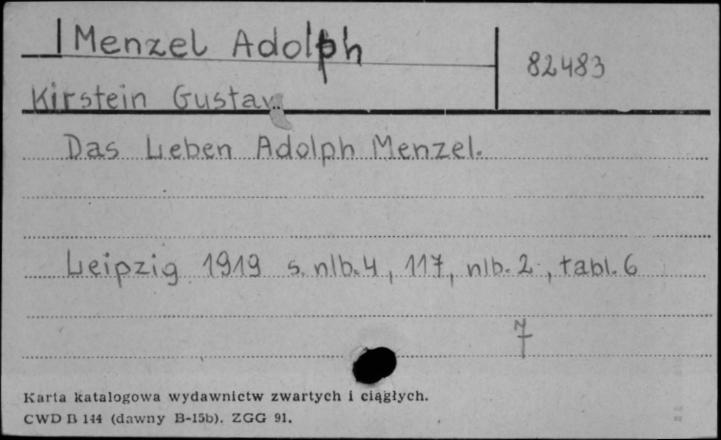 Menzel Adolph
82483
Kirstein Gustav
Das Leben Adolph Menzel.
Leipzig 1919 s. nlb. 4, 117, nlb. 2, tabl. 6
Karta katalogowa wydawnictw zwartych i ciągłych.
CWD B 144 (dawny B-15b). ZGG 91.